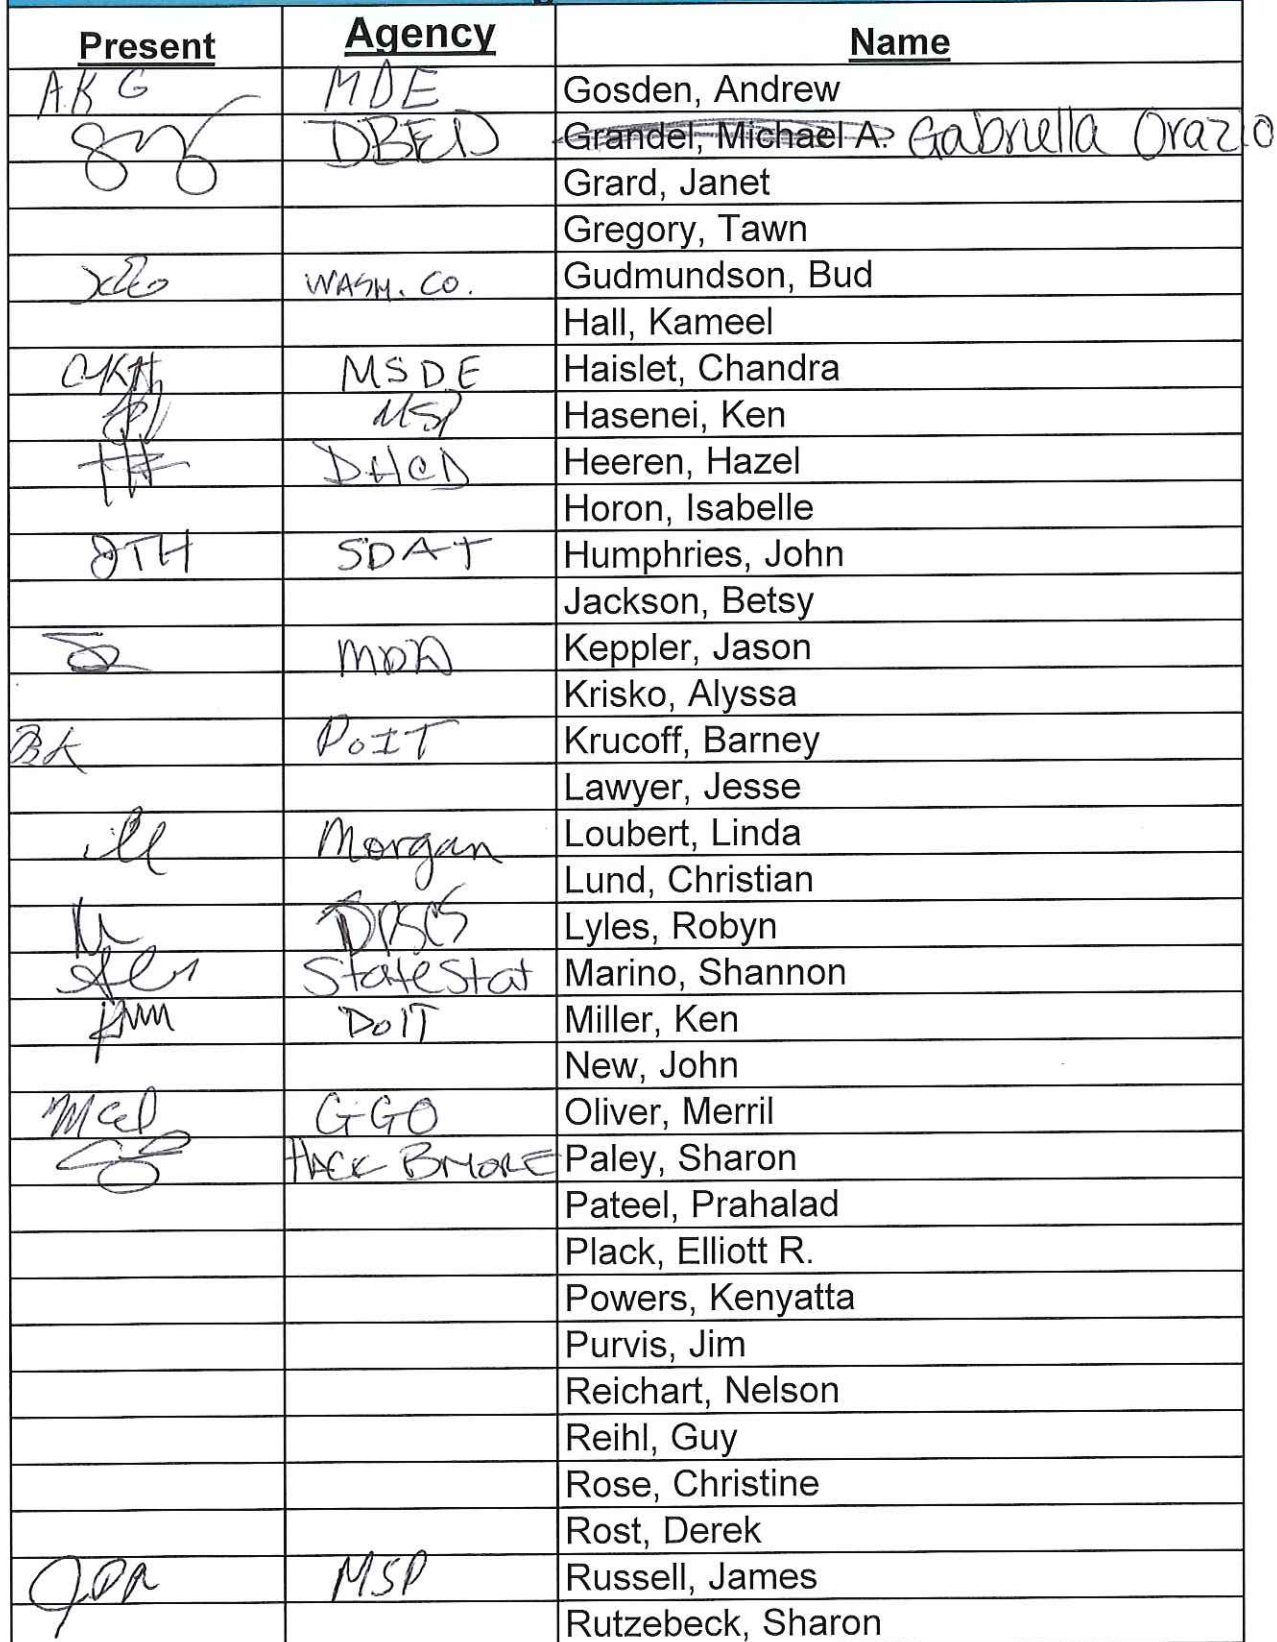 Present Agency Name
AKG MDE Gosden, Andrew
DBED Grandel, Michael A. Gabriella Orazio
Grard, Janet
Gregory, Tawn
WASH. CO. Gudmundson, Bud
Hall, Kameel
CKH MSDE Haislet, Chandra
MSP Hasenei, Ken
HH DHCD Heeren, Hazel
Horon, Isabelle
JTH SDAT Humphries, John
Jackson, Betsy
MDA Keppler, Jason
Krisko, Alyssa
BK DoIT Krucoff, Barney
Lawyer, Jesse
Morgan Loubert, Linda
Lund, Christian
DPSCS Lyles, Robyn
StateStat Marino, Shannon
DoIT Miller, Ken
New, John
GGO Oliver, Merril
HACK BMORE Paley, Sharon
Pateel, Prahalad
Plack, Elliott R.
Powers, Kenyatta
Purvis, Jim
Reichart, Nelson
Reihl, Guy
Rose, Christine
Rost, Derek
MSP Russell, James
Rutzebeck, Sharon